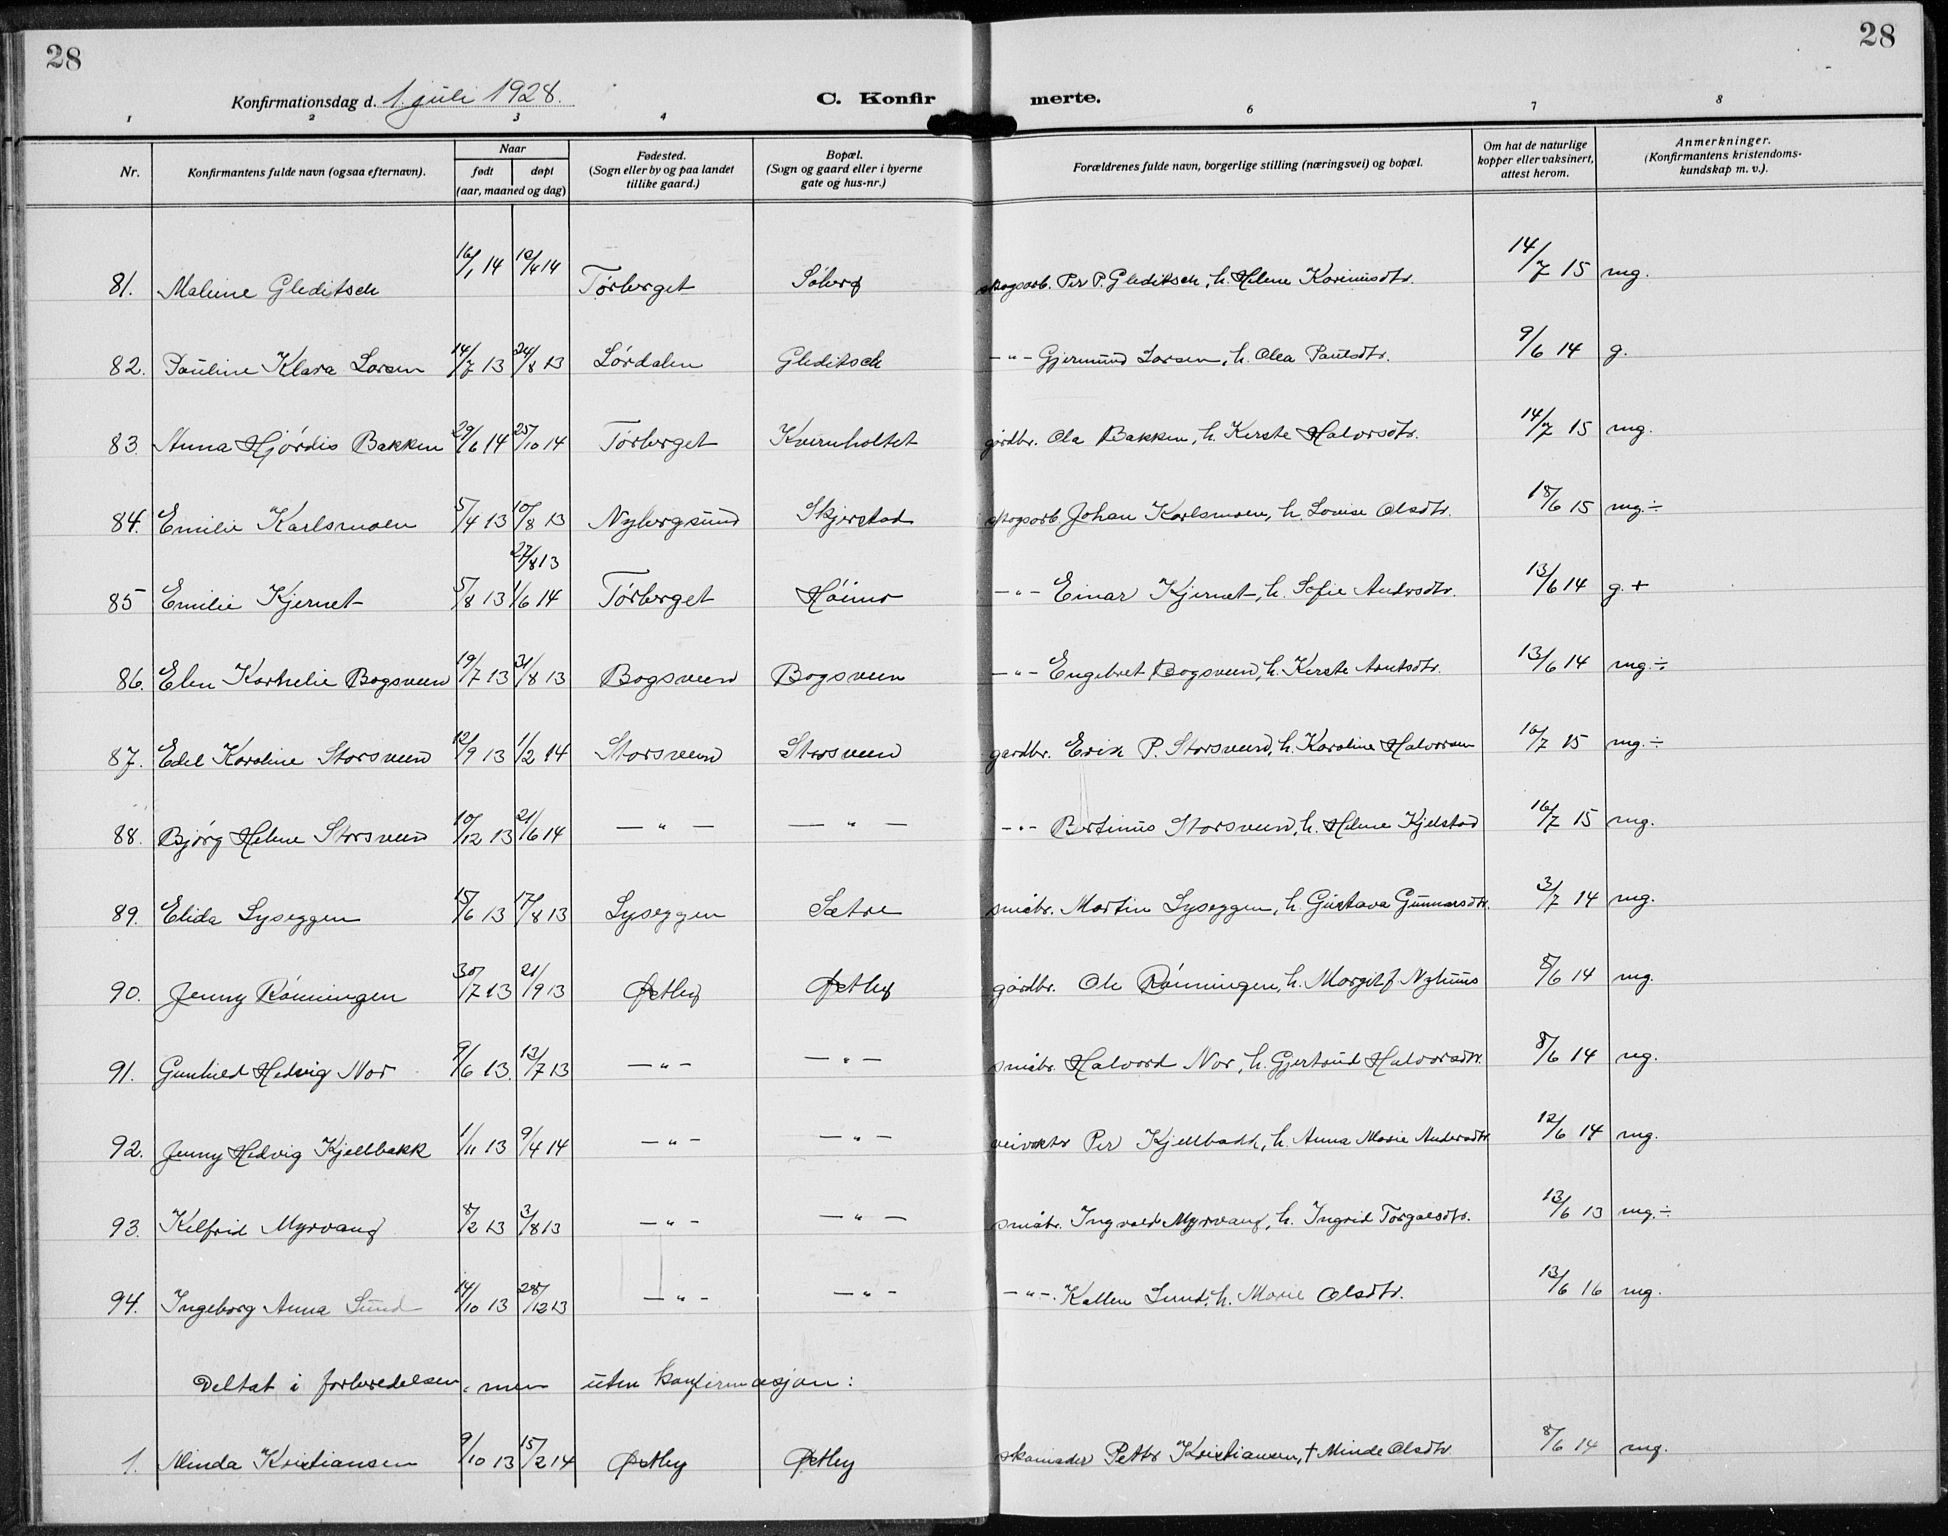 28
28
Konfirmationsdag d. 1. juli 1928.
C. Konfir merte.
1 2 3 4 6 7 8
Nr.
Konfirmantens fulde navn (ogsaa efternavn).
Naar
født døpt
(aar, maaned og dag)
Fødested.
(Sogn eller by og paa landet
tillike gaard.)
Bopæl.
(Sogn og gaard eller i byerne
gate og hus-nr.)
Forældrenes fulde navn, borgerlige stilling (næringsvei) og bopæl.
Om hat de naturlige
kopper eller vaksinert,
attest herom.
Anmerkninger.
(Konfirmantens kristendoms-
kundskap m. v.).
81. Malene Gleditsch 16/1 14 10/4 14 Tørberget Søberg skogsarb. Per P. Gleditsch, h. Helene Karinusdtr. 14/7 15 mg.
82. Pauline Klara Larsen 14/7 13 24/8 13 Lørdalen Gleditsch -"- Gjermund Larsen, h. Olea Paulsdtr. 9/6 14 g.
83. Anna Hjørdis Bakken 29/6 14 25/10 14 Tørberget Kvernholtet gårdbr. Ola Bakken, h. Kerste Halvorsdtr. 14/7 15 mg.
84. Emilie Karlsmoen 5/4 13 10/8 13 Nybergsund Skjerstad skogsarb. Johan Karlsmoen, h. Lovise Olsdtr. 18/6 15 mg.÷
27/8 13
85 Emilie Kjernet 5/8 13 1/6 14 Tørberget -"- Einar Kjernet, h. Sofie Andersdtr. 13/6 14 g.+
86. Elen Karnelie Bogsveen 19/7 13 31/8 13 Bogsveen Bogsveen -"- Engebret Bogsveen, h. Kerste Arntsdtr. 13/6 14 mg.÷
87. Edel Karoline Storsveen 12/9 13 1/2 14 Storsveen Storsveen gardbr. Erik P. Storsveen, h. Karoline Halvorsen 16/7 15 mg.÷
88. Bjørg Helene Storsveen 10/12 13 21/6 14 -"- -"- -"- Bertinus Storsveen, h. Helene Kjelstad 16/7 15 mg.
89. Elida Lyseggen 15/6 13 17/8 13 Lyseggen Sætre småbr. Martin Lyseggen, h. Gustava Gunnarsdtr. 3/7 14 mg.
90. Jenny Rønningen 30/7 13 21/9 13 Østby Østby gårdbr. Ole Rønningen, h. Margit Nyhuus 8/6 14 mg.
91. Gunhild Hedvig Nor 9/6 13. 13/7 13 -"- -"- småbr. Halvord Nor, h. Gjertrud Halvorsdtr. 8/6 14 mg.
92. Jenny Hedvig Kjellbakk 1/11 13 9/4 14 -"- -"- veivokter Per Kjellbakk, h. Anna Marie Andersdtr. 12/6 14 mg.
93. Kelfrid Myrvang 8/2 13 3/8 13 -"- -"- småbr. Ingvald Myrvang, h. Ingrid Torgalsdtr. 13/6 13 mg.÷
94. Ingeborg Anna Lund 14/10 13 28/12 13 -"- -"- -"-. Kallen Lund, h. Marie Olsdtr. 13/6 16 mg.
Deltat i forberedelsen, men uten konfirmasjon:
1. Minda Kristiansen 9/10 13 15/2 14 Østby Østby skomaker Petter Kristiansen, † Minde Olsdtr 8/6 14 mg.